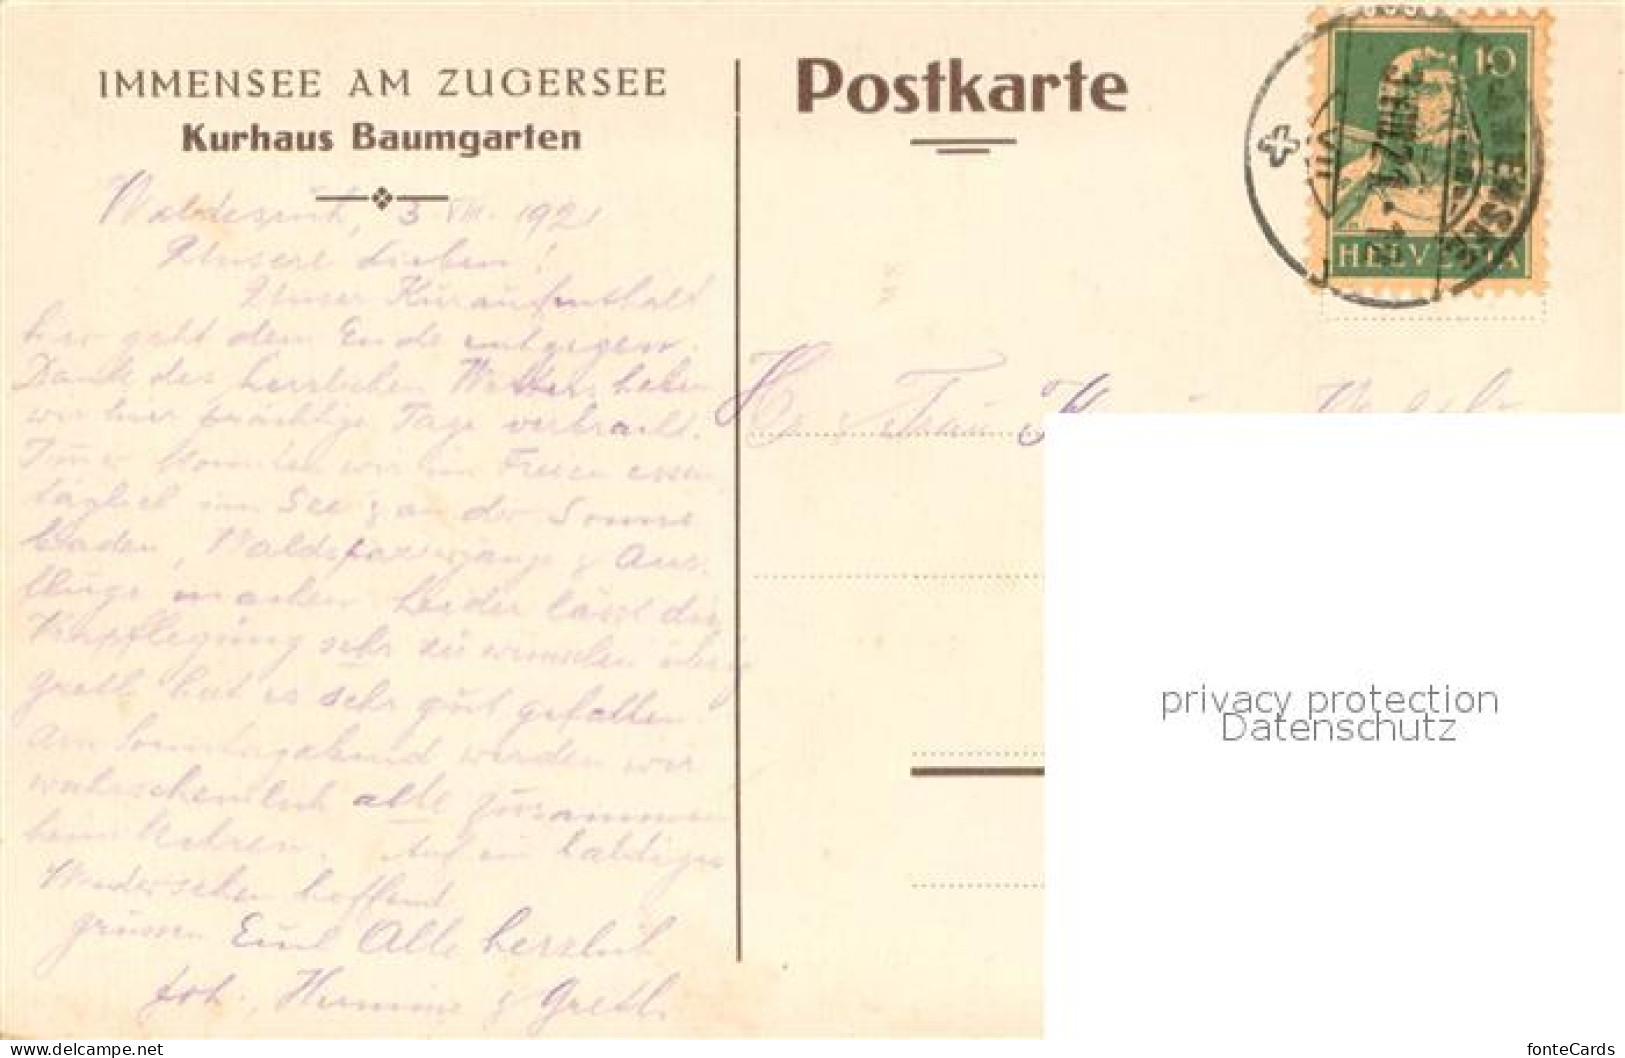 IMMENSEE AM ZUGERSEE
Kurhaus Baumgarten
Postkarte
10
HELVETIA
3 VIII. 1921
Unsere Lieben!
Unser Kuraufenthalt
hier geht dem Ende entgegen.
Dank des herrlichen Wetters haben
wir hier prächtige Tage verbracht.
Immer konnten wir im Freien essen,
täglich im See & an der Sonne
baden, Waldspaziergänge & Aus-
flüge machen. Leider lässt die
Verpflegung sehr zu wünschen übrig.
Gretli hat es sehr gut gefallen.
Am Sonntagabend werden wir
wahrscheinlich alle zusammen
heim kehren. Auf ein baldiges
Wiedersehen hoffend
grüssen Euch Alle herzlich
Joh., Hermine & Gretli
Frau
privacy protection
Datenschutz
www.delcampe.net
fonteCards